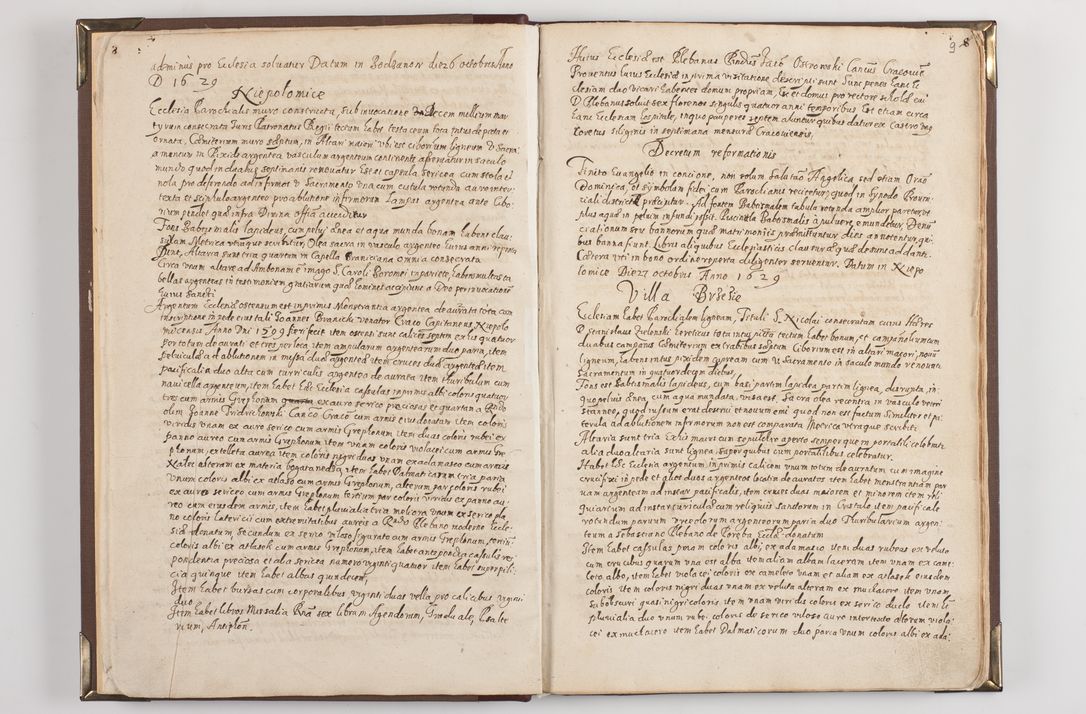 8
adminus pro Ecclesia soluatur Datum in Bodzanow die 26 octobris Anno
D 1629
Niepolomice
Ecclesia Parochialis muro constructa, sub inuocatione Decem millium mar
tyrum consecrata Iuris Patronatus Regii tectum habet testaceum tota intus depicta et
ornata, Cæmiterium muro septum, in Altari maiori ubi est ciborium ligneum V Sacra
mentum in Pixide argentea vasculum argenteum continente asseruatur in sacculo
mundo quod in duabus septimanis renouatur Est et capsula sericea cum stola et
nola pro deferendo ad infirmos V Sacramento una cum
texta et scyphulo argenteo pro ablutione infirmorum Lampas argentea ante Cibo
rium pendet quæ infra Diuina offitia accenditur
Fons Baptismalis Lapideus, cum pelui ænea et aqua munda bonam habens clau
suram Metrica utraque scribitur, Olea sacra in vasculo argenteo huius anni reperta
sunt, Altaria sunt tria quartum in Capella Braniciana omnia consecrata
Circa unum altare ad Ambonam e imago S. Caroli Boromei in pariete, habens multas ta
bellas argenteas in testimonium gratiarum quas homines accipiunt a Deo per inuocationem
huius sancti
Argentum Ecclesiæ ostensum est inprimis Monstrantia argentea de aurata tota cum
inscriptione in pede cristali Ioannes Branicki venator Craco Capitaneus Niepolo
micensis Anno Dni 1599 fieri fecit item ostensi sunt calices septem ex iis quatuor
per totum de aurati et tres per loca item ampularum argentearum duo paria, item
peluicula ad ablutionem in missa duo argentea item cruces duæ argenteæ item
pacificalia duo alta cum curriculis argenteo de aurata item thuribulum cum
nauicella argenteum, item habet hæc Ecclesia casulas inprimis albi coloris quatuor
tres cum armis Grephonum ex auro serico preciosas et quartam a Rndo
olim Ioanne Fridrichowski Canco Craco cum armis eius donatam item coloris
viridis unam ex auro serico cum armis Grephonum item duas coloris rubei ex
panno aureo cum armis Grephonum item unam coloris violacei cum armis Gre
phonum, ex telletta aurea item coloris nigri duas unam ex adamasco cum armis
Nalec alteram ex materia bogata nedza, item habet Dalmaticarum tria paria
unum coloris albi ex atlaso cum armis Grephonum, alterum par coloris rubei
ex auro sericeo cum armis Grephonum tertium par coloris viridis ex panno au
reo cum eisdem armis, item habet pluuialia tria meliora unum ex serico pla
no coloris Latericii cum extremitatibus aureis a Rndo Plebano moderno Eccle
siæ donatum secundum ex serico viloso figurato cum armis Grephonum, tertium
coloris albi ex atlaseh cum armis Grephonum, item habet antependia casulis res
pondentia preciosa et alia sericea numero viginti quatuor item habet superpili
cia quinque item habet albas quindecim,
Item habet bursas cum corporalibus viginti duas vella pro calicibus viginti
duo
Item habet libros Missalia Rna sex librum Agendorum, Graduale, Psalte
rium, Antiphon.
9 8
Huius Ecclesiæ est Plebanus Rndus Fatō Ostrowski Cancus Cracouie
Prouentus huius Ecclesiæ in prima visitatione descripti sunt Sunt penes hanc Ec
clesiam duo vicarii habentes domum propriam, Est et domus pro rectore scholæ cui
D Plebanus soluit sex florenos singulis quatuor anni temporibus Est etiam circa
hanc Ecclesiam hospitale, in quo pauperes septem aluntur quibus datur ex Castro
coretus siliginis in septimana mensuræ Cracouiensis,
Decretum reformationis
Finito Euangelio in concione, non solum Salutaō Angelica sed etiam Oraō
Dominica, et symbolum fidei cum Parochianis recitetur, quod in Synodo Prouin
ciali districte præcipitur. Ad fontem Baptismalem tabula rotunda amplior paretur, ut
plus aquæ in peluim infundi possit. Piscinula Baptismalis a puluere emundetur, Denun
ciationum seu bannorum quæ matrimoniis præmittuntur dies annotentur, qui
bus banna fiunt. Libris aliquibus Ecclesiasticis clausuræ quæ desunt addantur
Cætera uti in bono ordine reperta diligenter seruentur. Datum in Niepo
lomice Die 27 octobris Anno 1629
Villa Brzezie
Ecclesiam habet Parochialem ligneam, Tituli S. Nicolai consecratam cuius Hæres
D Stanislaus Zielenski hereticus tota intus picta tectum habet bonum, et campanile cum
duabus campanis Cæmiterium ex trabibus septum Ciborium est in altari maiori, nouum
ligneum, habens intus pixidem cupream cum V Sacramento in saculo mundo renouatur
Sacramentum in quatuordecim diebus,
Fons est baptismalis lapideus, cum basi partim lapidea partim lignea, disrupta, in
quo peluis ænea, cum aqua mundata, visa est. Sacra olea recentia in vasculo veteri
stanneo, quod iussum erat deseri et nouum emi quod non est factum similiter et pi
terula ad ablutionem infirmorum non est comparata Metrica utraque scribitur
Altaria sunt tria Ecclis maius cum sepulchro aperto semper que in portatili celebratur
alia duo altaria sunt lignea, super quibus cum portatilibus celebratur.
Habet hæc Ecclesia argentum inprimis calicem unum totum de auratum cum imagine
crucifixi in pede et alios duos argenteos locatim de auratos item habet monstrantiam par
uam argenteam ad instar pacificalis, item cruces duas maiorem et minorem item reli
quiarium ad instar curriculæ cum reliquiis sanctorum in Cristalo item pacificale
rotundum paruum Vrceolorum argenteorum paria duo Thuribularium argen
teum a Sebastiano Plebano de Poręba Eccla donatum
Item habet casulas, pena coloris albi, ex adamasco item duas rubeas ex veluto
cum crucibus quarum una est alba uenaliam albam laceram item unam ex came
loto albo, item habet violacei coloris ex cameleto unam et aliam ex atlaseh eiusdem
coloris item coloris nigri duas unam ex veluto alteram ex muchacro item unam
subobscuri quasi nigri coloris, item unam viridis coloris ex serico duclo item habet
pluuialia duo unum rubei coloris de serico viloso auro intertexto alterum viola
cei ex muchacro item habet Dalmaticorum duo paria unum coloris albi ex ada-